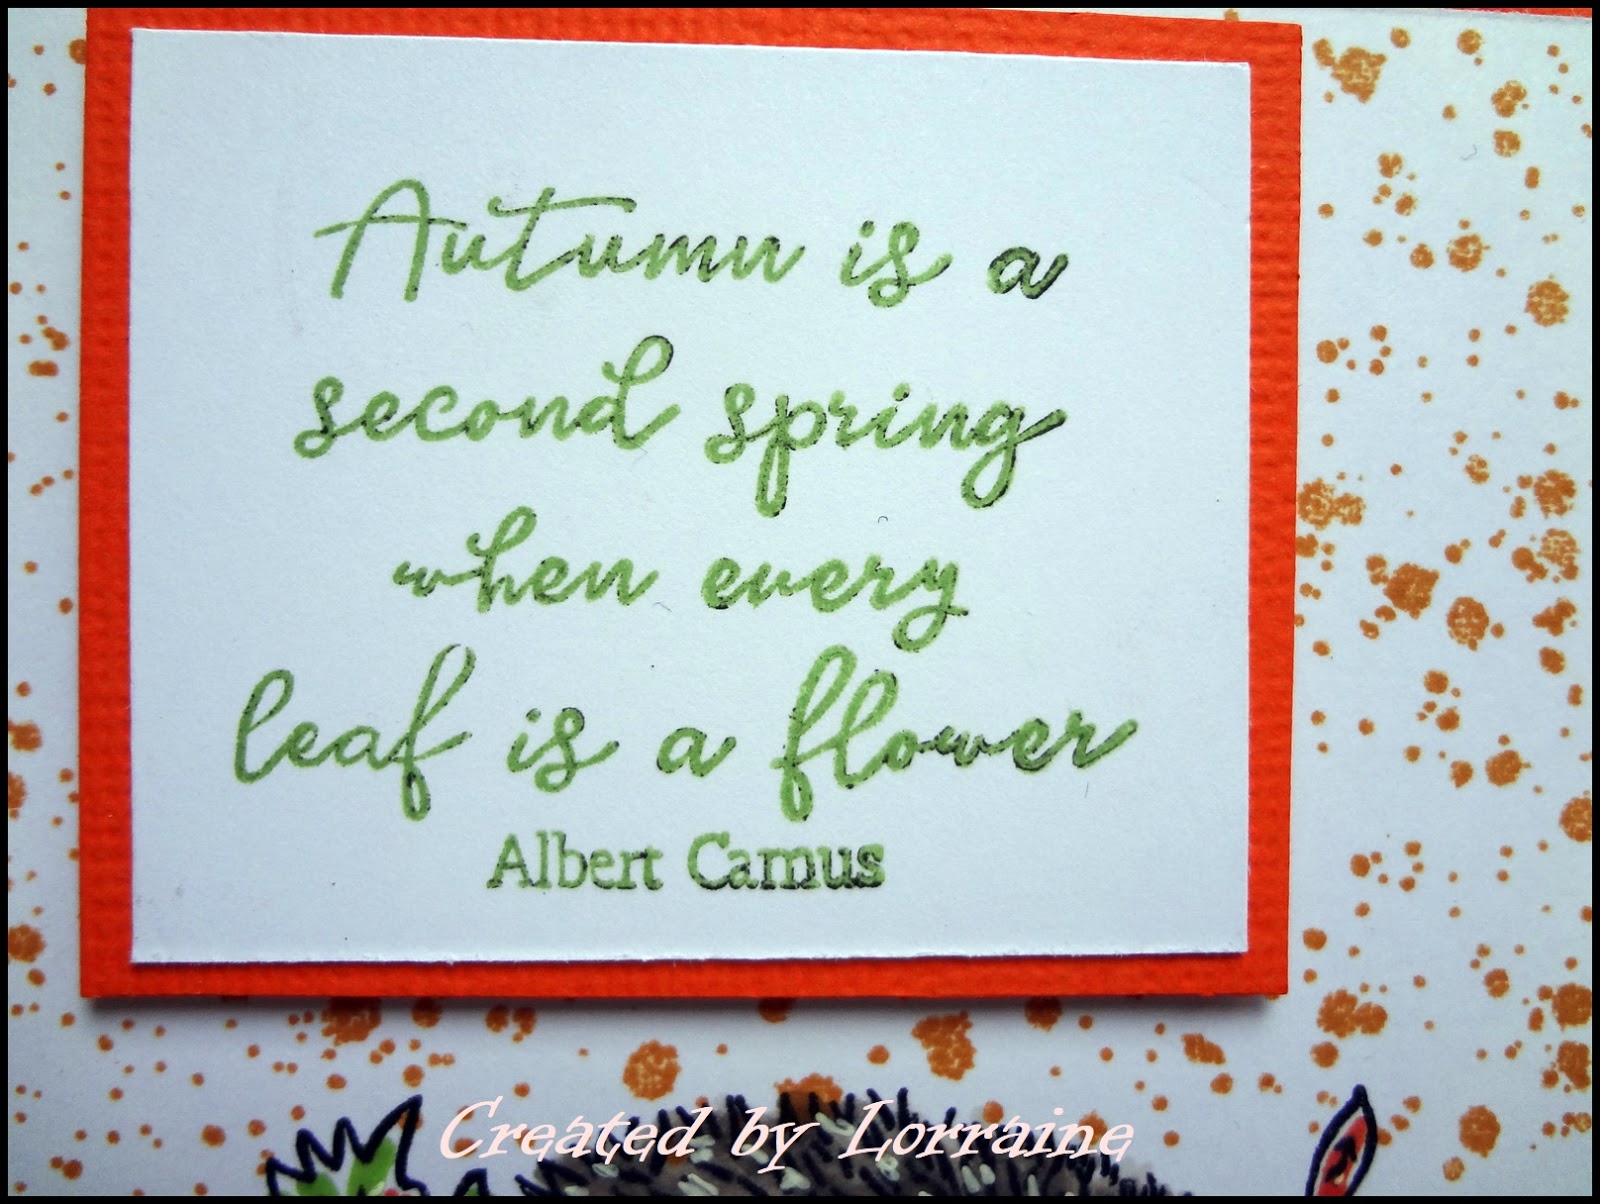 Autumn is a
second spring
when every
leaf is a flower
Albert Camus
Created by Lorraine